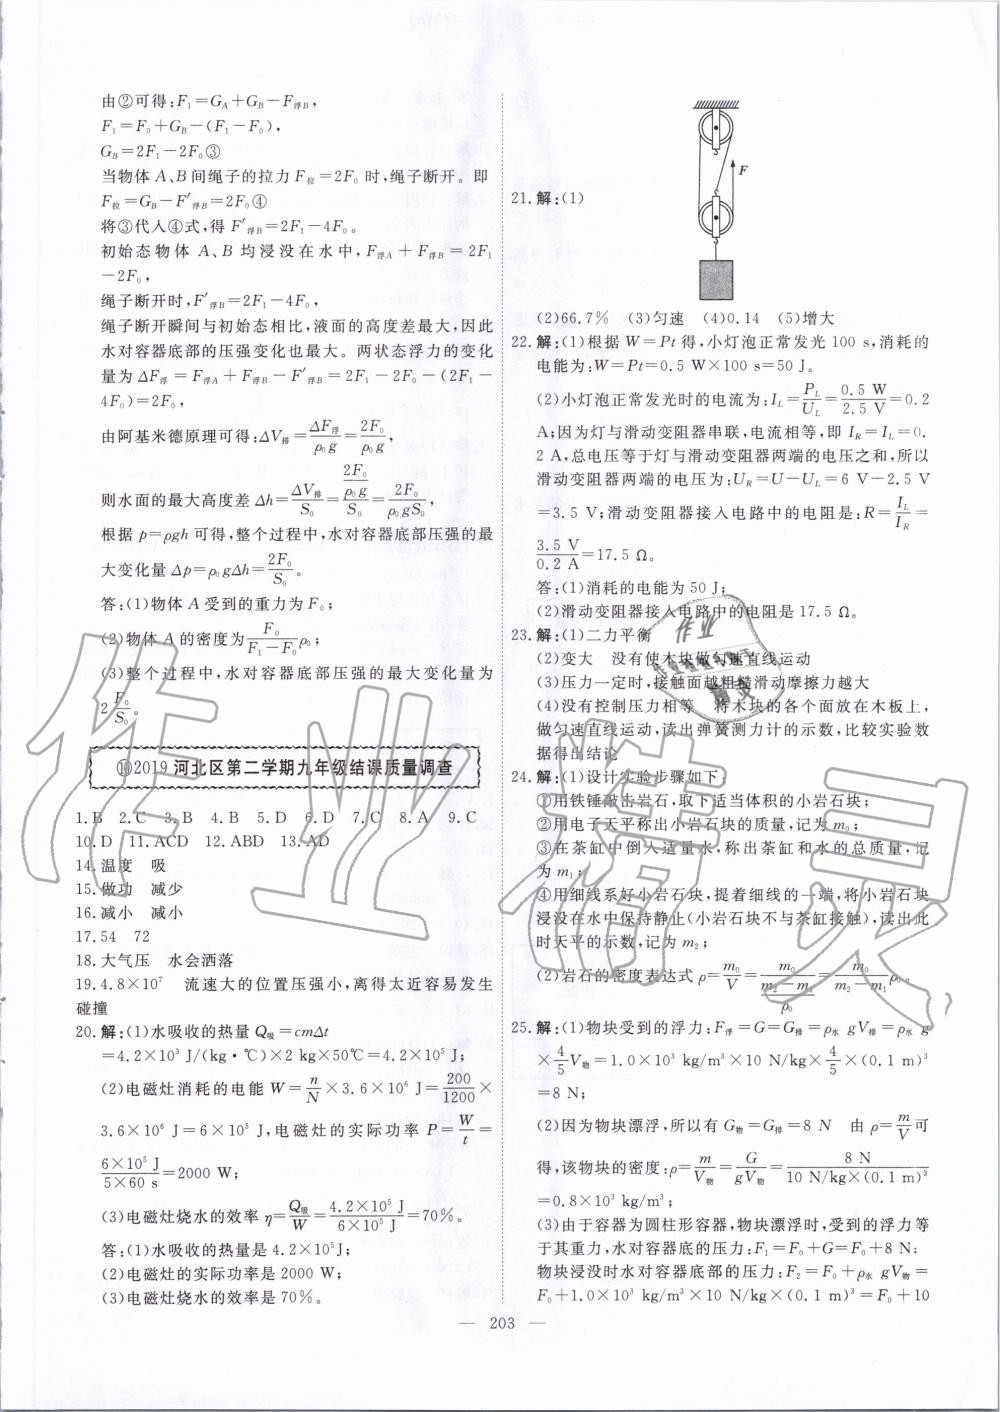 由②可得:F₁=G_A+G_B-F_浮B,
F₁=F₀+G_B-(F₁-F₀),
G_B=2F₁-2F₀③
当物体A、B间绳子的拉力F_拉=2F₀时,绳子断开。即
F_拉=G_B-F′_浮B=2F₀④
将③代入④式,得F′_浮B=2F₁-4F₀。
初始态物体 A、B 均浸没在水中,F_浮A+F_浮B=2F₁
-2F₀,
绳子断开时,F′_浮B=2F₁-4F₀,
绳子断开瞬间与初始态相比,液面的高度差最大,因此
水对容器底部的压强变化也最大。两状态浮力的变化
量为ΔF_浮=F_浮A+F_浮B-F′_浮B=2F₁-2F₀-(2F₁-
4F₀)=2F₀,
由阿基米德原理可得:ΔV_排=ΔF_浮/ρ₀g=2F₀/ρ₀g,
则水面的最大高度差Δh=ΔV_排/S₀=(2F₀/ρ₀g)/S₀=2F₀/ρ₀gS₀,
根据p=ρgh可得,整个过程中,水对容器底部压强的最
大变化量Δp=ρ₀gΔh=2F₀/S₀。
答:(1)物体A受到的重力为F₀;
(2)物体A的密度为F₀/(F₁-F₀)ρ₀;
(3)整个过程中,水对容器底部压强的最大变化量为
2F₀/S₀。
⑩2019河北区第二学期九年级结课质量调查
1.B 2.C 3.B 4.B 5.D 6.D 7.C 8.A 9.C
10.D 11.ACD 12.ABD 13.AD
14.温度 吸
15.做功 减少
16.减小 减小
17.54 72
18.大气压 水会洒落
19.4.8×10⁷ 流速大的位置压强小,离得太近容易发生
碰撞
20.解:(1)水吸收的热量Q_吸=cmΔt
=4.2×10³ J/(kg·℃)×2 kg×50℃=4.2×10⁵ J;
(2)电磁灶消耗的电能W=n/N×3.6×10⁶ J=200/1200×
3.6×10⁶ J=6×10⁵ J,电磁灶的实际功率P=W/t=
6×10⁵ J/5×60 s=2000 W;
(3)电磁灶烧水的效率η=Q_吸/W=4.2×10⁵ J/6×10⁵ J=70%。
答:(1)水吸收的热量是4.2×10⁵J;
(2)电磁灶的实际功率是2000 W;
(3)电磁灶烧水的效率是70%。
F
21.解:(1)
(2)66.7% (3)匀速 (4)0.14 (5)增大
22.解:(1)根据W=Pt得,小灯泡正常发光100 s,消耗的
电能为:W=Pt=0.5 W×100 s=50 J。
(2)小灯泡正常发光时的电流为:I_L=P_L/U_L=0.5 W/2.5 V=0.2
A;因为灯与滑动变阻器串联,电流相等,即I_R=I_L=0.
2 A,总电压等于灯与滑动变阻器两端的电压之和,所以
滑动变阻器两端的电压为:U_R=U-U_L=6 V-2.5 V
=3.5 V;滑动变阻器接入电路中的电阻是:R=I_L/I_R=
3.5 V/0.2 A=17.5 Ω。
答:(1)消耗的电能为50 J;
(2)滑动变阻器接入电路中的电阻是17.5 Ω。
23.解:(1)二力平衡
(2)变大 没有使木块做匀速直线运动
(3)压力一定时,接触面越粗糙滑动摩擦力越大
(4)没有控制压力相等 将木块的各个面放在木板上,
做匀速直线运动,读出弹簧测力计的示数,比较实验数
据得出结论
24.解:(1)设计实验步骤如下:
①用铁锤敲击岩石,取下适当体积的小岩石块;
②用电子天平称出小岩石块的质量,记为m₀;
③在茶缸中倒入适量水,称出茶缸和水的总质量,记
为m₁;
④用细线系好小岩石块,提着细线的一端,将小岩石块
浸没在水中保持静止(小岩石块不与茶缸接触),读出此
时天平的示数,记为m₂;
(2)岩石的密度表达式ρ=m₀/V=m₀/((m₂-m₁)/ρ₀)=m₀/(m₂-m₁)ρ₀。
25.解:(1)物块受到的浮力:F_浮=G=G_排=ρ_水 gV_排=ρ_水 g
×4/5V_物=1.0×10³ kg/m³×10 N/kg×4/5×(0.1 m)³
=8 N;
(2)因为物块漂浮,所以有G_物=G_排=8 N 由ρ=m/V可
得,该物块的密度:ρ=m/V_物=G/gV_物=8 N/10 N/kg×(0.1 m)³
=0.8×10³ kg/m³;
(3)由于容器为圆柱形容器,物块漂浮时,受到的浮力等
于其重力,水对容器底的压力:F₁=F₀+G=F₀+8 N;
物块浸没时水对容器底部的压力:F₂=F₀+ρ_水 gV_物=
F₀+1.0×10³ kg/m³×10 N/kg×(0.1 m)³=F₀+10
— 203 —
作业精灵